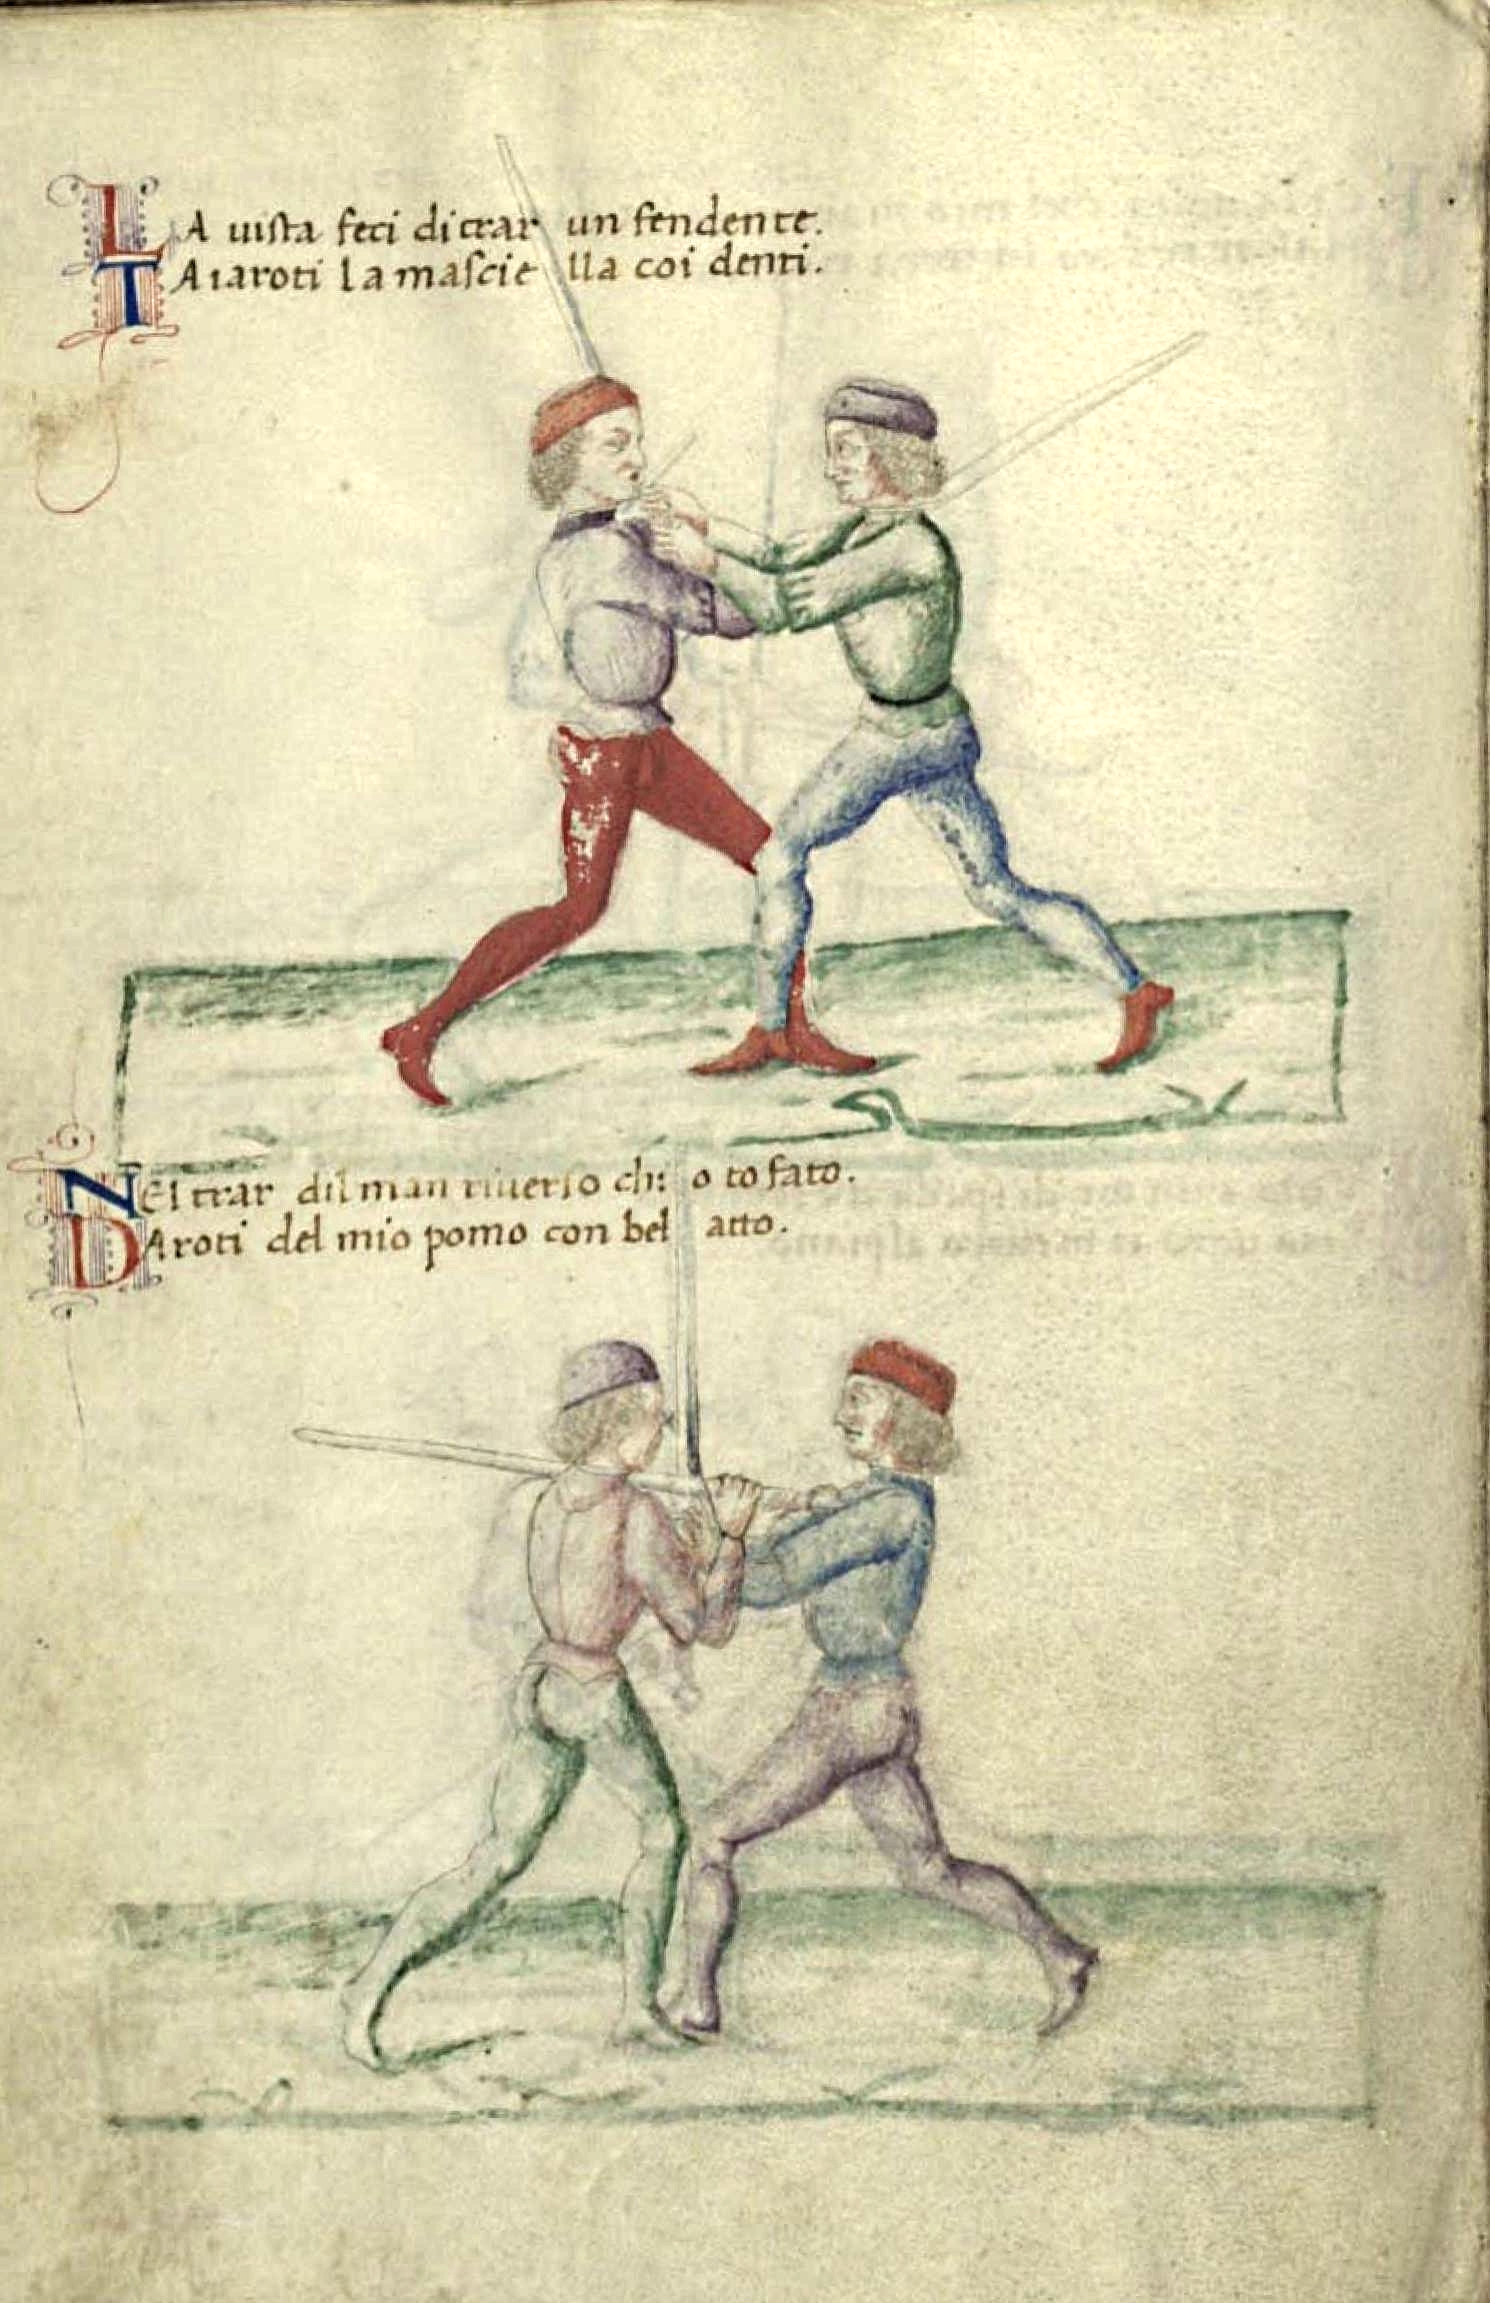 LA uista feci di trar un fendente.
TAiaroti la mascie lla coi denti.
NEl trar dil man riuerso ch: o to fato.
DAroti del mio pomo con bel atto.